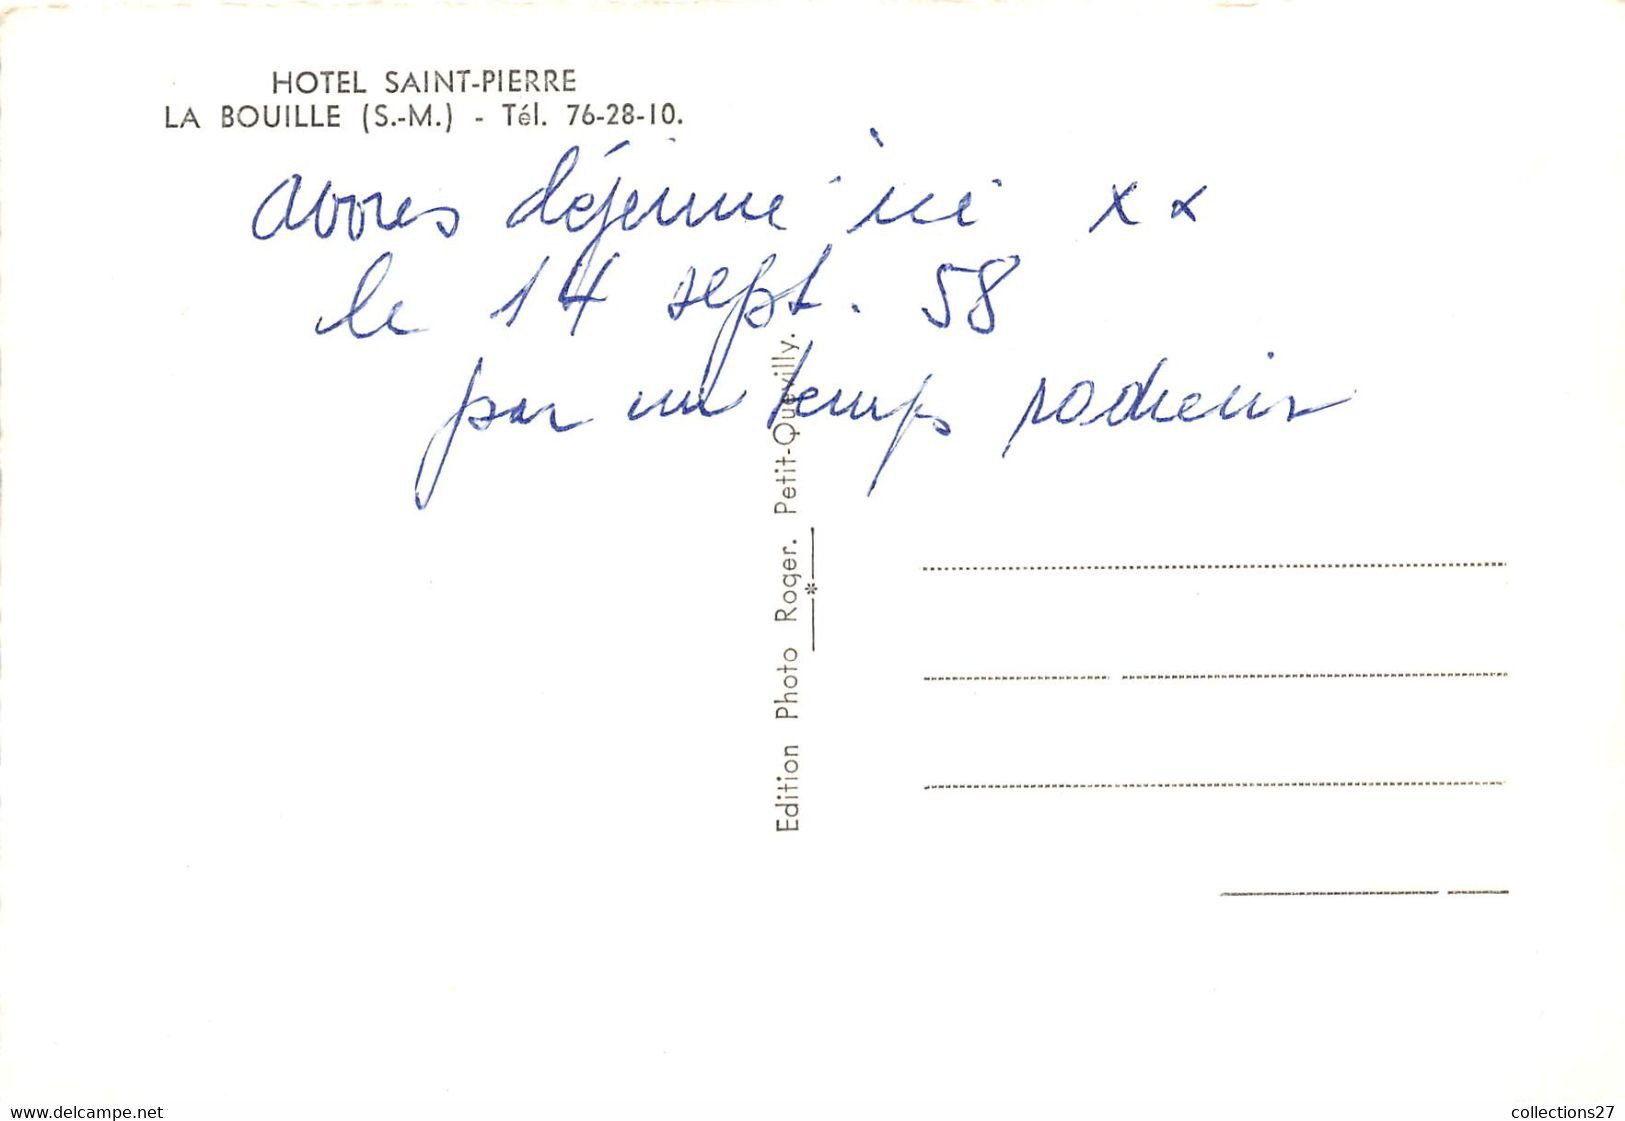 HOTEL SAINT-PIERRE
LA BOUILLE (S.-M.) - Tél. 76-28-10.
avons déjeuné ici xx
le 14 sept. 58
par un temps radieux
Edition Photo Roger. Petit-Quevilly.
www.delcampe.net
collections27